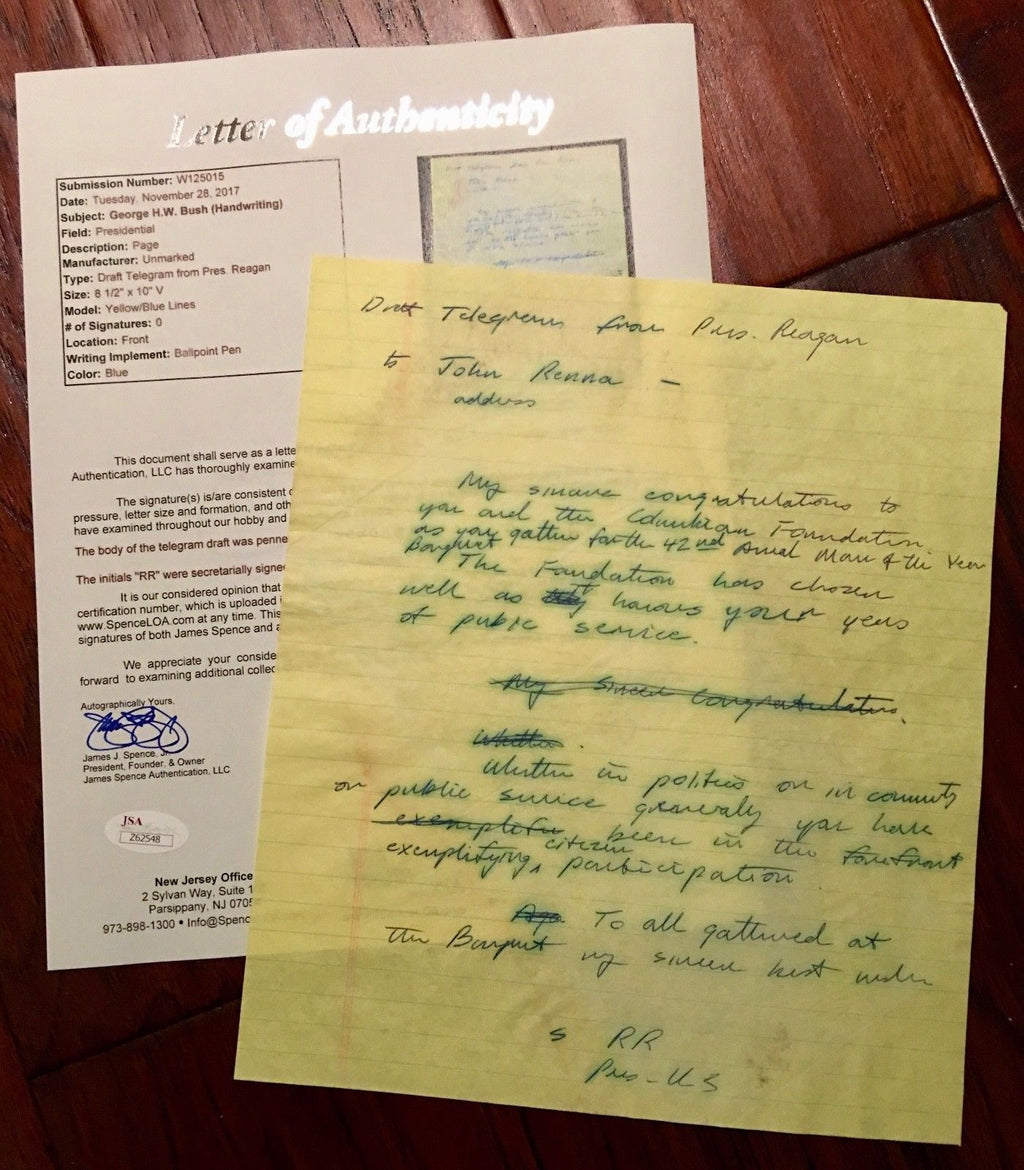 Letter of Authenticity
Submission Number: W125015
Date: Tuesday, November 28, 2017
Subject: George H.W. Bush (Handwriting)
Field: Presidential
Description: Page
Manufacturer: Unmarked
Type: Draft Telegram from Pres. Reagan
Size: 8 1/2" x 10" V
Model: Yellow/Blue Lines
# of Signatures: 0
Location: Front
Writing Implement: Ballpoint Pen
Color: Blue
This document shall serve as a lette
Authentication, LLC has thoroughly examine
The signature(s) is/are consistent
pressure, letter size and formation, and oth
have examined throughout our hobby and
The body of the telegram draft was penne
The initials "RR" were secretarially signe
It is our considered opinion that
certification number, which is uploaded
www.SpenceLOA.com at any time. This
signatures of both James Spence and a
We appreciate your conside
forward to examining additional collec
Autographically Yours,
James J. Spence, Jr
President, Founder, & Owner
James Spence Authentication, LLC
JSA
Z62548
New Jersey Office
2 Sylvan Way, Suite 1
Parsippany, NJ 0705
973-898-1300 • Info@Spenc
Draft Telegram from Pres. Reagan
to John Renna —
address
My sincere congratulations to
you and the Columbian Foundation
as you gather for the 42nd Annual Man of the Year
Banquet
The Foundation has chosen
well as it honors your years
of public service.
My Sincere Congratulations.
Whether.
Whether in politics or in community
or public service generally you have
exemplifu been in the forefront
exemplifying, citizen participation.
To all gathered at
the Banquet my sincere best wishes
s RR
Pres - U S